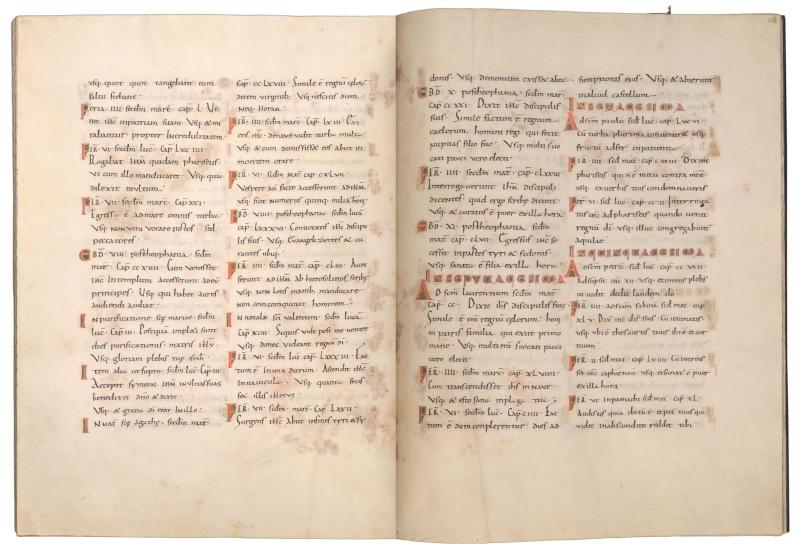 usq· quot quot tangebant eum
salui fiebant
Feria· IIII· secdm marc̄ cap̄· L· Ve
nit ihc̄ inpatriam suam Vsq· & mi
rabantur propter Incredulitatem
Fer̄· VI· secdm luc̄· Cap̄·
Rogabat Ihm̄ quidam phariseus
ut cum illo manducaret· Vsq· quo
dilexit multum·
Fer̄· VII· secdm marc̄· cap̄· XXI·
Egress' ē admare omnis turba·
Vsq· non ueni uocare iustos sed
peccatores·
Ebd· VIII· postheophania· secdm
mat· Cap̄ CC XVIII· Cum uenisset
ihc̄ Intemplum Accesserunt adeū
principes· Vsq· qui habet aures
audiendi audiat·
In purificatione scē mariae· secdm
luc̄· Cap̄ III· Postquā impleti sunt
dies purificationis matris ihū·
Vsq· gloriam plebis tuę isrl·
Item aliu ut supra· secdm luc̄· Cap̄ III
Accepit symeon ihm̄ inulnas suas
benedixit dn̄o & dixit·
Vsq· & gratia dī erat Inillo·
In nat̄ scē agathę· secdm mat·
cap̄· CC LXVIII· Simile ē regnū cęlor·
decem uirginib· Vsq· nescitis diem
neq· horam·
Fer̄· IIII· secdm marc̄· cap̄ LX III·
ens ihc̄· uidit turbā multā·
Vsq· & cum dimisisset eos abiit in
montem orare·
Fer̄· VI· secdm mat̄ cap̄ CXLVII·
Vespere aū facto Accesserunt ad ihm̄
Vsq· sunt numerus quinq· milia hom̄·
Ebd· VIIII· postheophania· secdm lucā
cap̄· LXXXVI· Conuocatis ihc̄ discipu
lis suis· Vsq· Euangelizantes & cu
rantes ubiq·
Fer̄· IIII· secdm mat· cap̄· CLIIII· Acces
serunt ad ihm̄ ab hierosolimis scribę·
Vsq· non lotis manib· manducare
non coinquinat hominem·
In natale scī ualentini· secdm lucā·
Cap̄ XCIII· Siquis uult post me uenire
Vsq· donec uideant regnū dī·
Fer̄· VI· secdm luc̄· cap̄· LXXX III· Fac
tum ē In una dierum· Ascendit ihc̄
Innauicula· Vsq· quattu
illis
Fer̄· VII· secdm marc̄· cap̄· LXVII·
Surgens ihc̄ Abiit infines tyri & sy
donis· Vsq· demonium exisse abea·
Ebd· X· postheophania· secdm mat·
cap̄ CC XXI· Dixit ihc̄ discipulis
suis· Simile factum ē regnum
caelorum homini regi qui fecit
nuptias filio suo· Vsq· multi sunt
uocati pauci uero electi·
Fer̄· IIII· secdm mat· cap̄· CLXXIIII·
Interrogauerunt ihm̄ discipuli
dicentes quid ergo scribę dicunt
Vsq· & curatus ē puer exilla hora·
Ebd· XI· postheophania· secdm
mat· cap̄ CLVII· Egressus ihc̄ se
cessit inpartes tyri & sidonis·
Vsq· sanata ē filia exilla hora·
IN SEPTUAGESIMA
Ad scm̄ laurentium secdm mat·
Cap̄· CC· Dixit ihc̄ discipulis suis·
Simile ē enī regnū cęlorum· hom
ini patris familia· qui exiit primo
mane· Vsq· multi enī sunt uocati pauci
uero electi·
Fer̄· IIII· secdm marc̄· cap̄ XL VIIII·
Cum transcendisset ihs in naui
Vsq·
Fer̄· VI· secdm luc̄· Cap̄ CIIII· Fac
tum ē dum complerentur dies ad
sumptionis eius· Vsq· & abierunt
inaliud castellum·
IN SEXAGESIMA
Ad scm̄ paulū secd luc̄· cap̄ LXX VI·
Cū turba plurima conuenirēt· usq·
fructū adfert inpatientia·
Fer̄· IIII· sed mat· cap̄ CXXII· Dix̄ ihc̄
phariseis qui nē mecū contra me ē·
usq· exuerbis tuis condemnaueris
Fer̄ VI· sed luc̄· cap̄· CC II· Interroga
tus ihc̄ ad phariseis· quando uenit
regnū dī· Vsq· illuc congregabunt̄
aquilae·
IN QUINQUAGESIMA
Ad scm̄ petrū· sed luc̄· cap̄ CC XXII·
Adsūpsit ihc̄ XII· Vsq· & omnis plebs
ut uidit dedit laudem dō·
Fer̄· IIII· ad scam̄ sabinā· sed mat· cap̄
XL V· Dix̄ ihc̄ dis̄ suis· Cū ieiunatis
usq· ubi ē thesaurus tuus ibi ē et cor
tuum·
Fer̄· V· sed mat· cap̄· LXVIII· Cū introis
set ihc̄ capharnaū· Vsq· et sanatꝰ ē puer
exilla hora·
Fer̄· VI· sed mat· cap̄ XL·
Audistis quia dictū ē· Vsq· et pater tuus qui
uidet inabscondito reddet tibi·